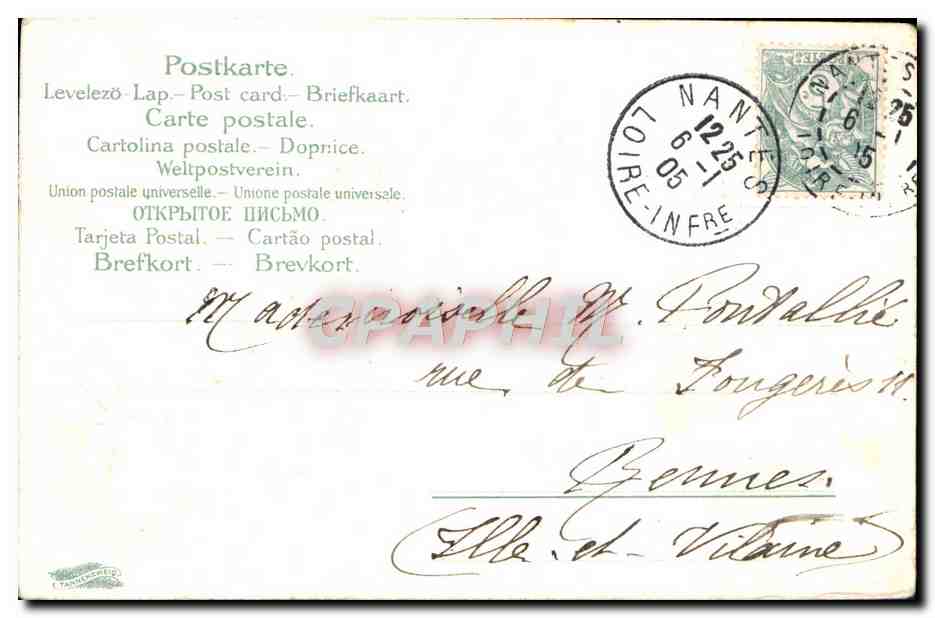 Postkarte.
Levelező-Lap.- Post card.- Briefkaart.
Carte postale.
Cartolina postale.- Dopisnice.
Weltpostverein.
Union postale universelle.- Unione postale universale.
ОТКРЫТОЕ ПИСЬМО.
Tarjeta Postal. — Cartão postal.
Brefkort. — Brevkort.
NANTES
12 25
6 - 1
05
LOIRE-INFRE
POSTE
Mademoiselle M. Pontallié
CPAPHIL
rue de Fougères 11.
Rennes.
(Ille-et-Vilaine)